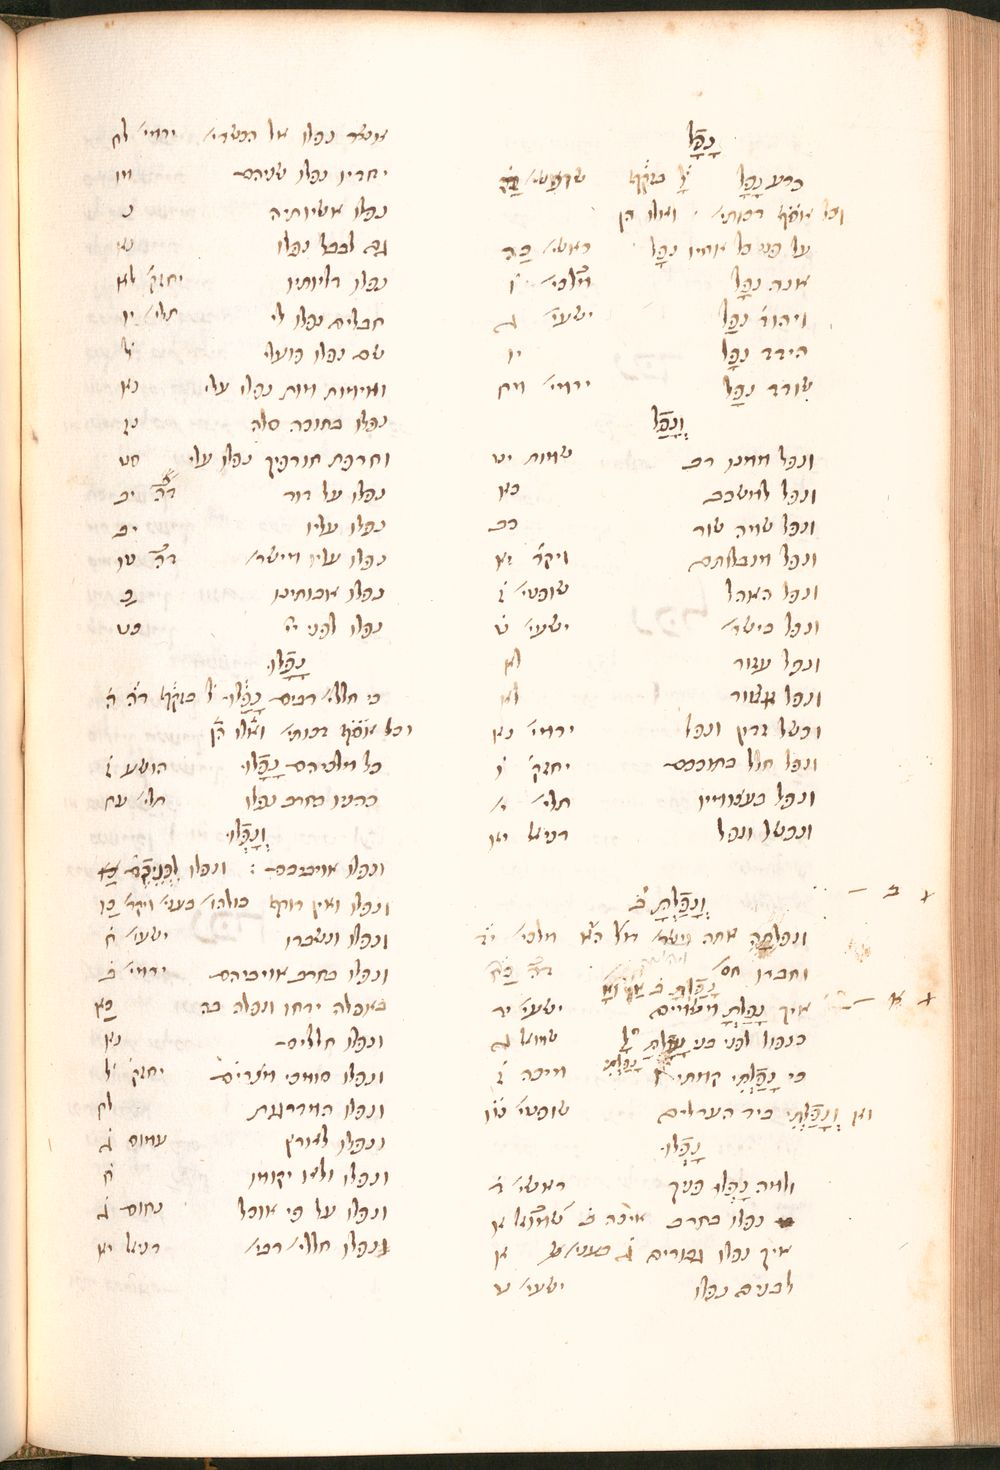 נָפָל
כרע נָפָל
וכל אס"ף דכותי' ואלו הן
על פני כל אחיו נפל ראשי' כה
אנה נפל מלכי' ו
ויהוד' נפל ישעי' ג
הידד נפל יו
שודד נפל ירמי' מח
וְנָפַל
ונפל ממנו רב שמות יט
ונפל למשכב כא
ונפל שמה שור
ונפל מנבלתם ויקר' יא
ונפל האהל שופטי' ז
ונפל בישר' ישעי' ט
ונפל עזור לא
ונפל אשור לא
וכשל זדון ונפל ירמי' נא
ונפל חלל בתוככם יחזק' ו
ונפל בעצומיו תלי' י
ונכשל ונפל דניאל יא
ב
וְנָפַלְתָּ ב
ונפלתה אתה
וחברו חס'
א
איך נָפַלְתָּ משמים ישעי' יד
כנפול לפני בני עולה שמואל ג
כי נָפַלְתִּי קמתי מיכה ז
וְנָפַלְתִּי ביד הערלים שופטי' טו
נָפְלוּ
ולמה נָפְלוּ פניך ראשי' ד
נפלו בחרב איכה ב שמואל א
איך נפלו גבורים ג בעני' א
לבנים נפלו ישעי' ט
אשר נפלו אל הכשדי' ירמי' לח
יחדיו נפלו שניהם מו
נפלו אשיותיה נ
גם לבבל נפלו נא
נפלו דליותיו יחזק' לא
חבלים נפלו לי תלי' יו
שם נפלו פועלי ל
ואימות מות נפלו עלי נא
נפלו בתוכה סלה נז
וחרפת חורפיך נפלו עלי סט
נפלו על דוד ד"ה יב
נפלו עליו יב
נפלו עליו מישר' ד"ה טו
נפלו אבותינו כ
נפלו לפני יי' כט
נָפָלוּ
כי חללי' רבים נָפָלוּ ל בזקף ד"ה ה
וכל אס"ף דכותי' ואלו הן
כל מלכיהם נָפָלוּ הושע ז
כהניו בחרב נפלו תלי' עח
וְנָפְלוּ
ונפלו אויביכם : ונפלו לִפְנֵיכֶם
ונפלו ואין רודף כולהו' בעני' ויקר' כו
ונפלו ונשברו ישעי' ח
ונפלו בחרב אויביהם ירמי' כ
באפלה ידחו ונפלו בה כא
ונפלו חללים נא
ונפלו סומכי מצרים יחזק' ל
ונפלו המדרגות לח
ונפלו לארץ עמוס ג
ונפלו ולא יקומו ח
ונפלו על פי אוכל נחום ג
ונפלו חללי' רבי' דניאל יא